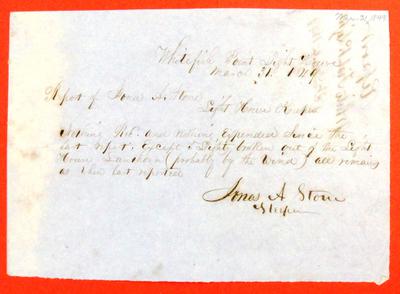 Mar. 31, 1849
Whitefish Point Light House
March 31st 1849
Report of Jonas A. Stone
Light House Keeper
Having Rcd. and Nothing Expended Since the
last report. Except 5 Lights broken out of the Light
House Lanthorn (probably by the Wind) all remains
as then last reported
Jonas A Stone
Keeper